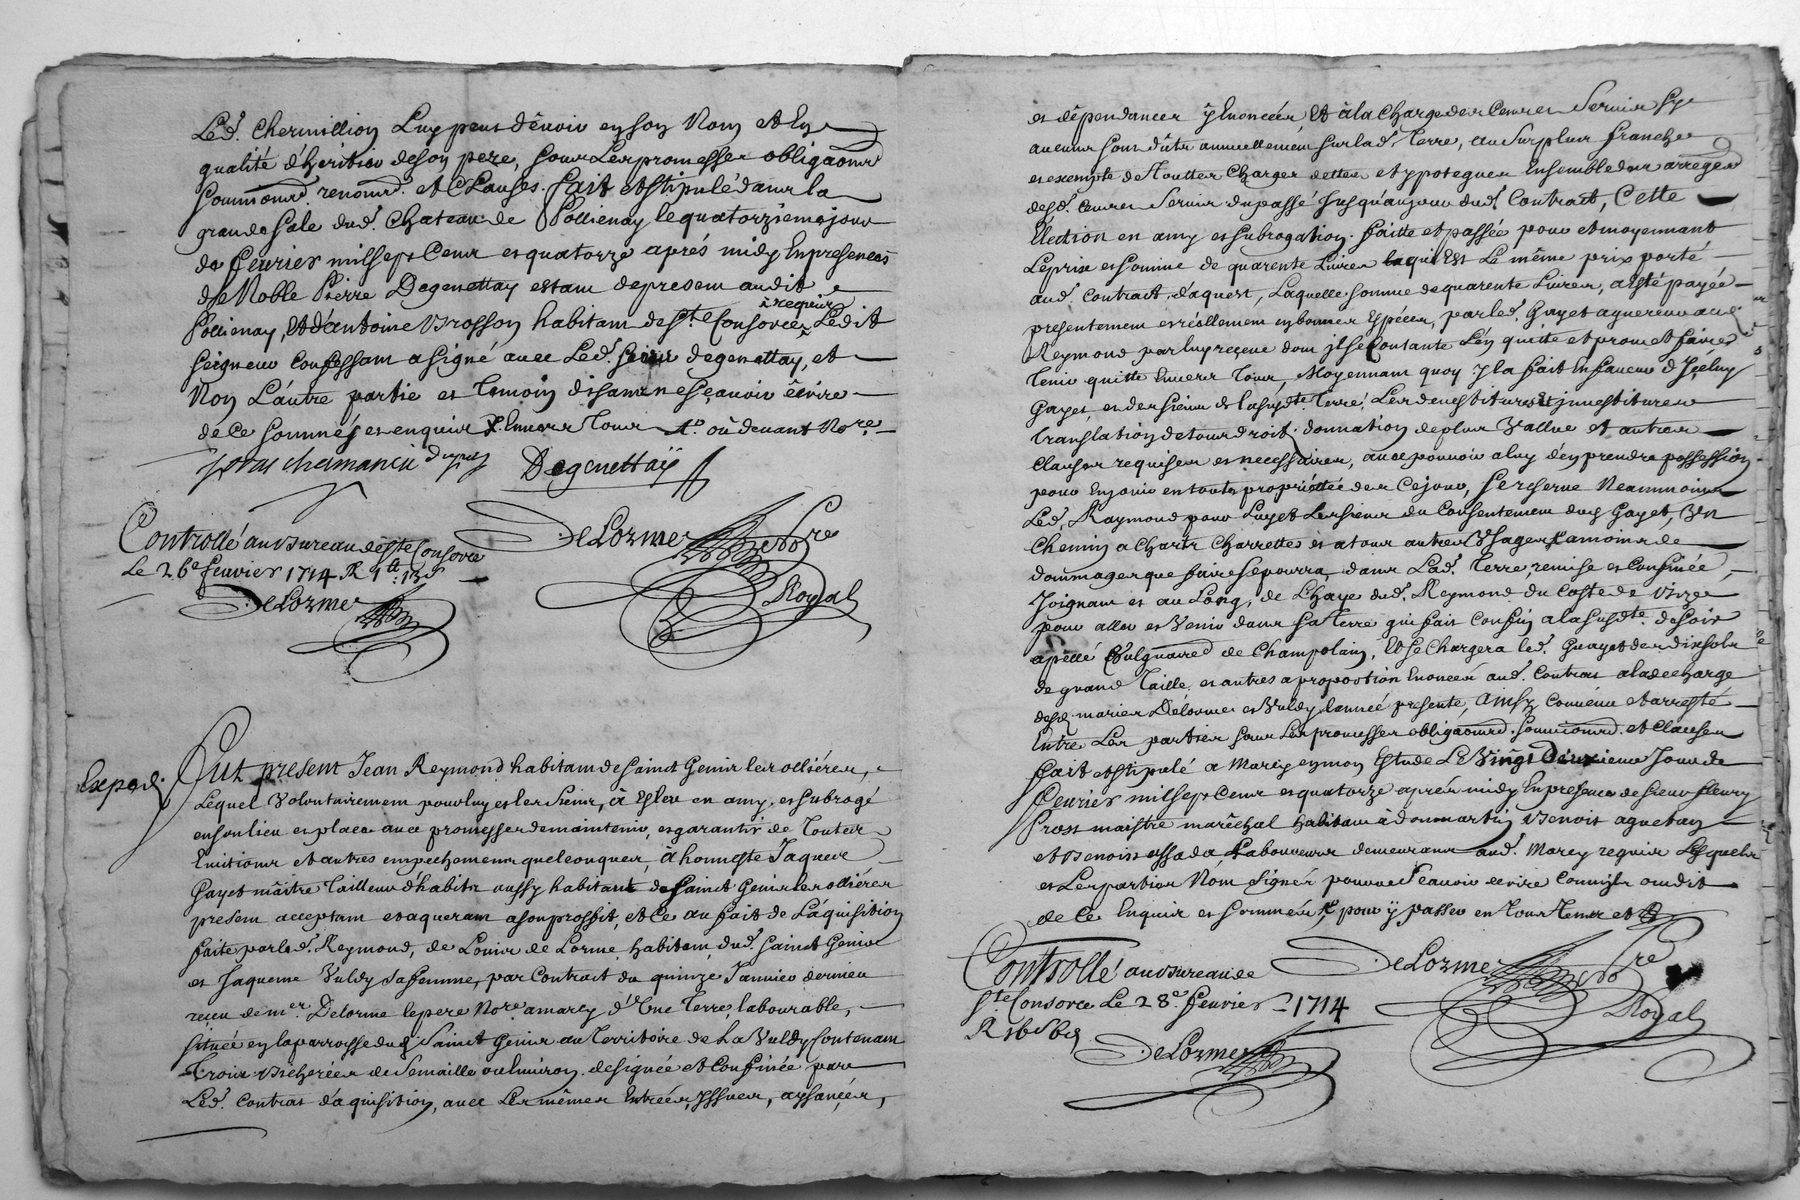 Led. Chermillion Luy peut dêvoir en son Nom et En
qualité d'hêritier de son pere, sous Les promesses obligaons
soumions. renons. et Clauses. fait et stipulé dans la
grande sale dud. Chateau de Pollienay le quatorzieme jour
de feurier mil sept Cent et quatorze aprés midy En presences
de Noble Pierre Degenettay estant de present audit
Pollienay, Et d'antoine Brosson habitant de Ste Consorce à requis Ledit
Seigneur Confessant a signé auec Led. sieur degenettay, et
Non L'autre partie et temoin disant ne sçauoir êcrire
de Ce sommés et enquis Enuers Tous ou deuant Nore
Degenettaÿ
Controllé au Bureau de Ste Consorce
Le 26e feurier 1714 R
DeLorme Nore
Royal
DeLorme
Exped.
Fut present Jean Reymond habitant de Sainct Genis les ollières,
Lequel Volontairement pour luy et les siens, à Esleu en amy et subrogé
en son lieu et place auec promesses de maintenir, et garantir de Toutes
Euictions et autres empechements quelconques, à honneste Jaques
Gayet mâitre Tailleur d'habits aussy habitant de Sainct Genis les ollières
present acceptant et aquerant a son proffit, et Ce au fait de L'aquisition
faite par led. Reymond, de Louis de Lorme habitant dud. Sainct Genis
et Jaqueme Buldy sa femme, par Contract du quinze Januier dernier
reçeu de mer. Delorme le pere Nore a marcy d'Vne Terre, labourable,
située en la parroisse dud Sainct Genis au Territoire de La Buldy Contenant
Trois Bicherées de Semaille ou Enuiron. designée et Confinée par
Led. Contrat d'aquisition, auec Les mêmes Entrées, Jssues, aysances,
et dêpendances ÿ Enoncées Et à la Charge des Cences Seruis sy
aucuns sont dûts annuellement sur lad. Terre, au surplus franche
et exempte de Toutes Charges dettes et ypoteques Ensemble des arreges
desd. Cences Seruis du passé Jusqu'au jour dud. Contract, Cette
Election en amy et subrogation. faitte et passée pour et moyennant
Le prix et somme de quarente Liures qui Est Le même prix porté
aud. Contract d'aquest, Laquelle somme de quarente Liures, a Esté payée
presentement et réellement en bonnes Espéces, par led. Gayet aquereur aud
Reymond par luy reçeue dont jl se Contante L'en quitte et promet faire
Tenir quitte Enuers Tous, Moyennant quoy Jl a fait En faueur d'Jçeluy
Gayet, et des siens de la susdte Terre, Les deuestitures et jnuestitures
translation de tous droit, donnation de plus Vallue et autres
Clauses requises et necessaires, auec pouuoir a luy d'en prendre possession
pour En jouir en toute proprietée des Ce jour, se reserue Neammoins
Led. Raymond pour Luy et Les siens du Consentement dud Gayet, Vn
Chemin a Chars Charrettes et a tous autres Vsages a moins de
dommages que faire se pourra, dans Lad. Terre, remise et Confinée,
Joignant et au Long, de L'haye dud. Reymond du Costé de Bize
pour aller et Venir dans sa Terre qui fait Confin a la susdte de soir
apellé Vulguaired de Champolain, Et se Chargera led. Guayet des dixsols
de grand Taille et autres a proportion Enoncés aud. Contrat a la decharge
desd mariés Delorme et Buldy L'année presente, Ainsy Conuenu et arresté
Entre Les parties sous Les promesses obligaons. soumions. et Clauses
fait et stipulé a Marcy en mon Estude Le Vingt Deuxieme Jour de
Feurier mil sept Cent et quatorze aprés midy En presence de sieur fleury
Pross maistre marêchal habitant à dommartin Benoit aguetan
et Benoist assada, Laboureurs demeurants aud. Marcy requis Lesquels
et Les parties Nont signés pour ne sçauoir ecrire Comme Jls ondit
de Ce Enquis et sommés pour ÿ passer en Tous Tems et
Controllé au Bureau de
Ste Consorce Le 28e feurier 1714
DeLorme Nore
Royal
DeLorme